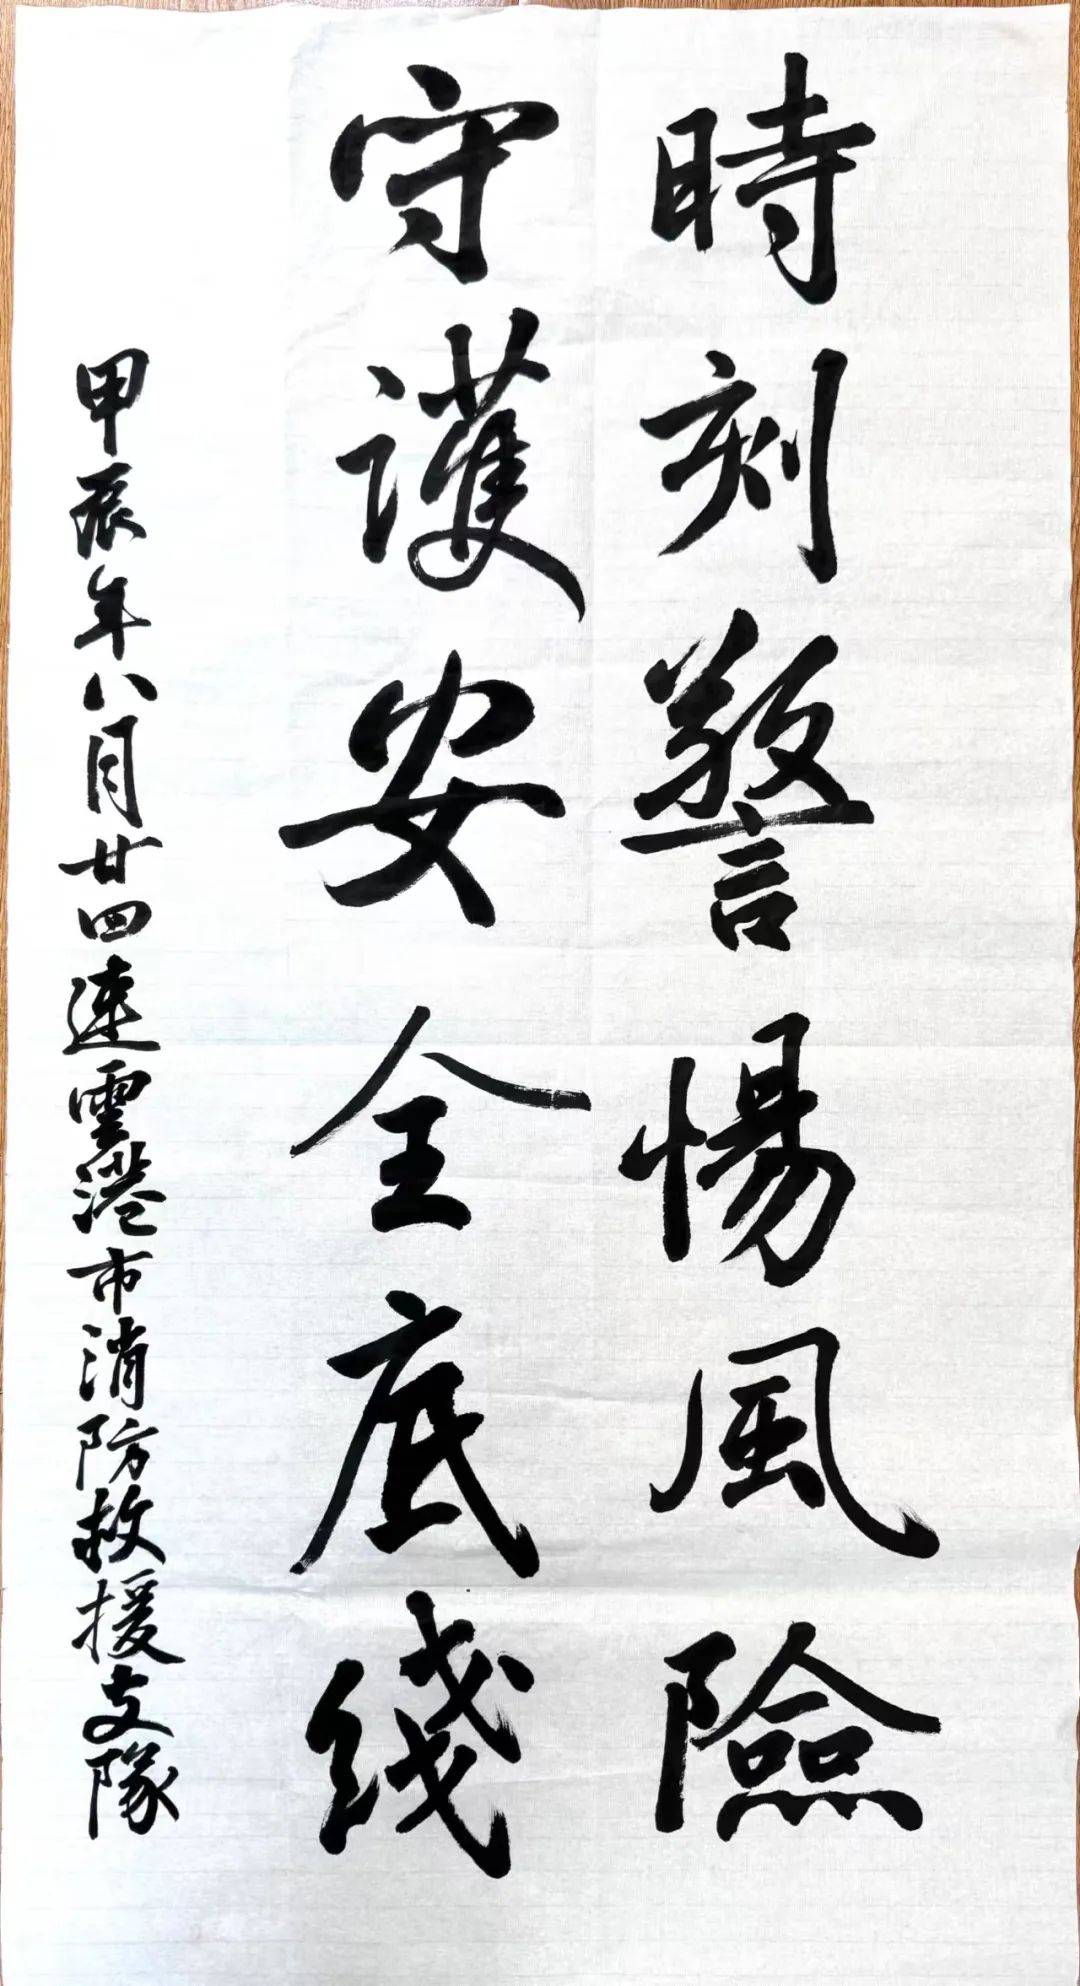 時刻警愓風險
守護安全底綫
甲辰年八月廿四連雲港市消防救援支隊